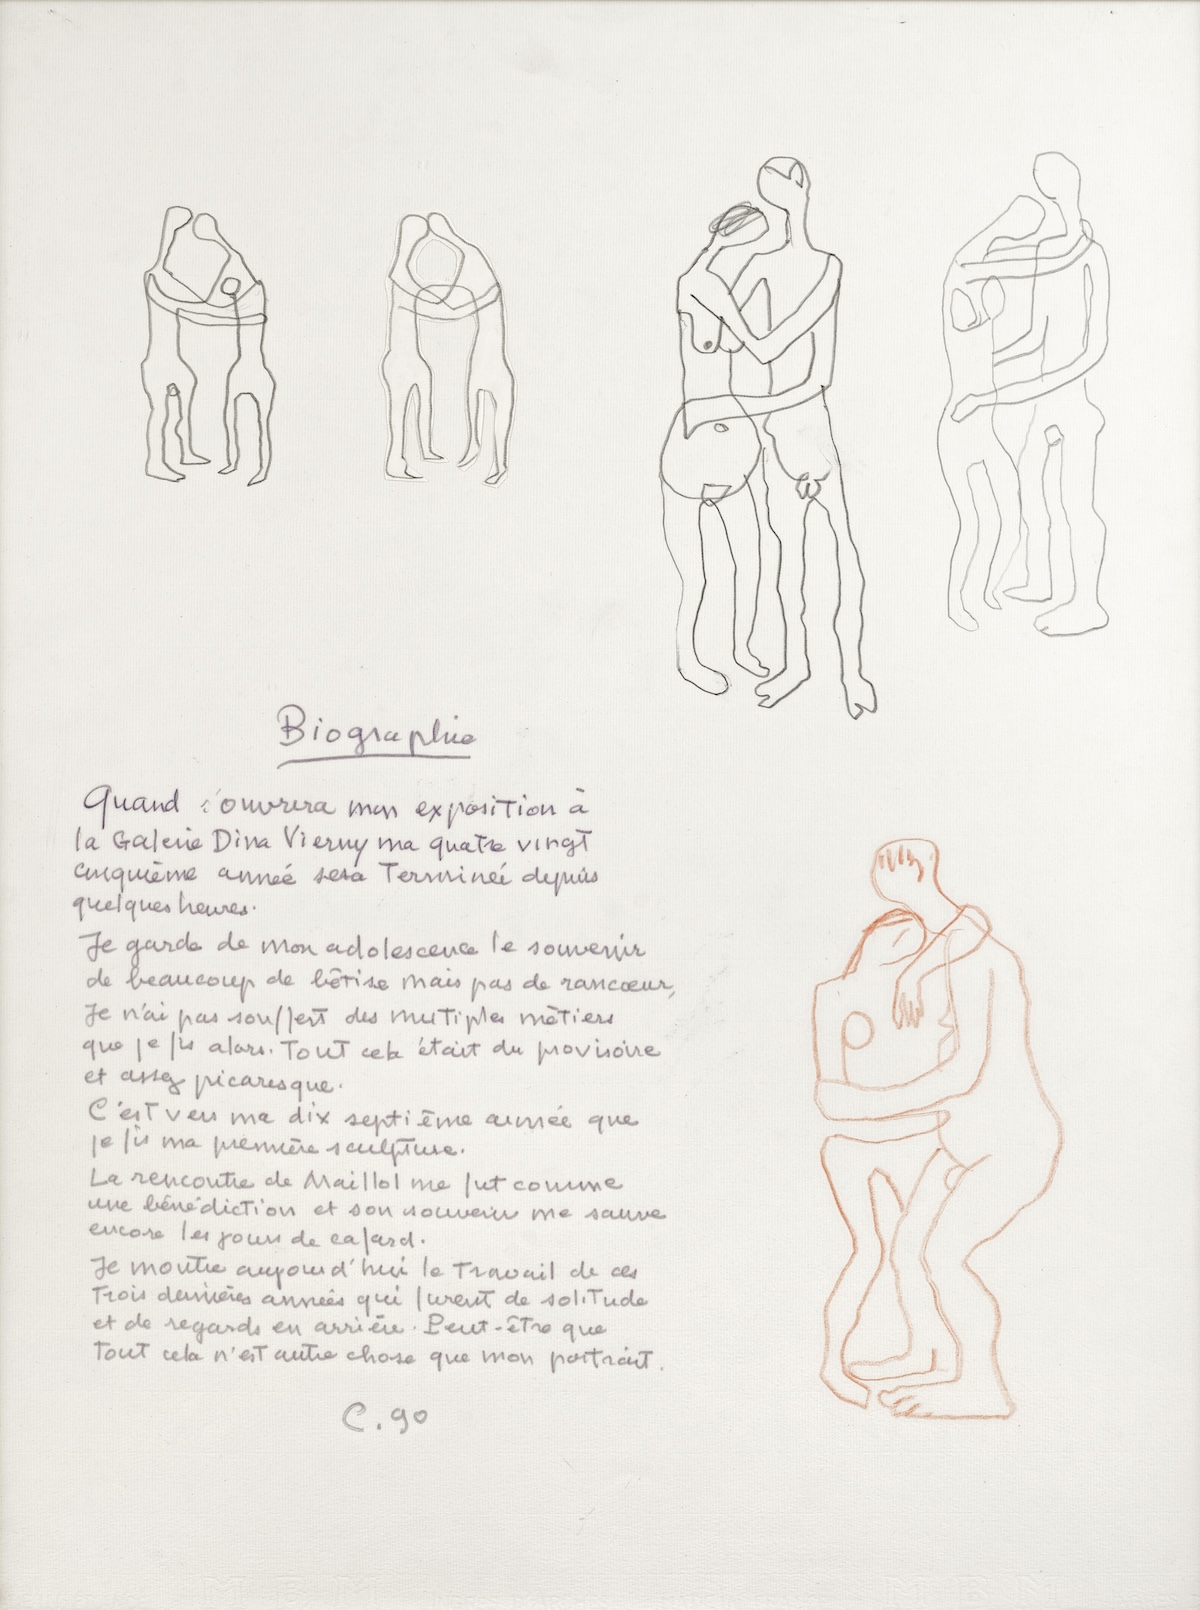 Biographie
Quand s'ouvrira mon exposition à
la Galerie Dina Vierny ma quatre vingt
cinquième année sera Terminée depuis
quelques heures.
Je garde de mon adolescence le souvenir
de beaucoup de bêtise mais pas de rancœur,
Je n'ai pas souffert des multiples métiers
que je fis alors. Tout cela était du provisoire
et assez picaresque.
C'est vers ma dix septième année que
je fis ma première sculpture.
La rencontre de Maillol me fut comme
une bénédiction et son souvenir me sauve
encore les jours de cafard.
Je montre aujourd'hui le Travail de ces
Trois dernières années qui furent de solitude
et de regards en arrière. Peut-être que
Tout cela n'est autre chose que mon portrait.
C. 90